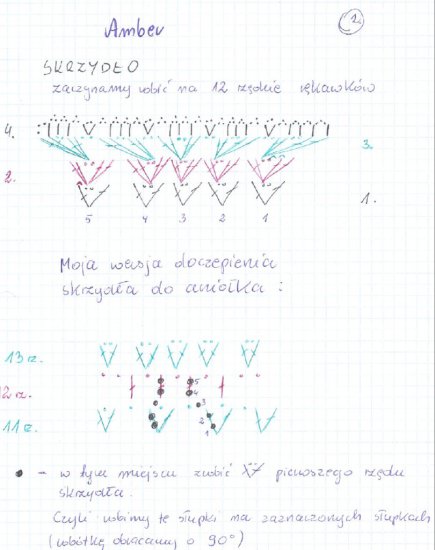 Amber
2.
SKRZYDŁO
zaczynamy robić na 12 rzędzie rękawków
4.
3.
2.
1.
5 4 3 2 1
Moja wersja doczepienia
skrzydła do aniołka :
13 rz.
12 rz.
5
4
3
11 rz.
2
1
• - w tym miejscu zrobić pierwszego rzędu
skrzydła.
Czyli robimy te słupki na zaznaczonych słupkach
(robótkę obracamy o 90°)